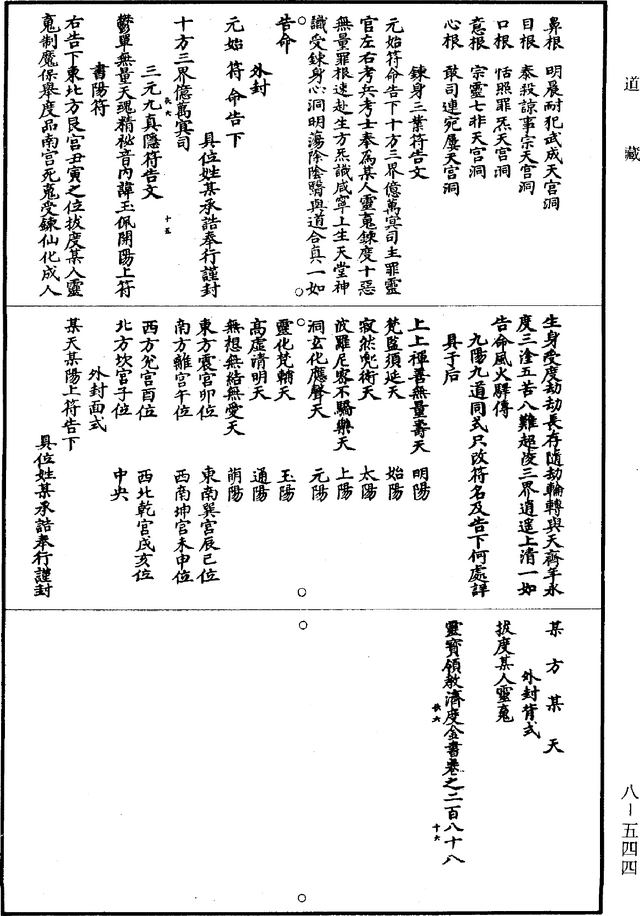 道藏
鼻根　明晨耐犯武成天宮洞
目根　泰殺諒事宗天宮洞
口根　恬照罪炁天宮洞
意根　宗靈七非天宮洞
心根　敢司連宛屢天宮洞
鍊身三業符告文
元始符命告下十方三界億萬冥司主罪靈
官左右考兵考士奉為某人靈䰟鍊度十惡
無量罪根速赴生方炁識咸寧上生天堂神
識受鍊身心洞明蕩除陰翳與道合真一如
告命
外封
元始符命告下
具位姓某承誥奉行謹封
十方三界億萬冥司
三元九真隱符告文
鬱單無量天魂精祕音內諱玉佩開陽上符
書陽符
右告下東北方艮宮丑寅之位拔度某人靈
䰟制魔保舉度品南宮死䰟受鍊仙化成人
生身受度劫劫長存隨劫輪轉與天齊年永
度三塗五苦八難超陵三界逍遥上清一如
告命風火驛傳
九陽九道同式只改符名及告下何處詳
具于后
上上禪善無量壽天　明陽
梵監須延天　始陽
寂然兜術天　太陽
波羅尼密不驕樂天　上陽
洞玄化應聲天　元陽
靈化梵輔天　玉陽
高虛清明天　通陽
無想無結無愛天　萌陽
東方震宮卯位　東南巽宮辰巳位
南方離宮午位　西南坤宮未申位
西方兌宮酉位　西北乾宮戌亥位
北方坎宮子位　中央
外封面式
某天某陽上符告下
具位姓某承誥奉行謹封
某方某天
外封背式
拔度某人靈䰟
靈寶領教濟度金書卷之二百八十八
八－五四四